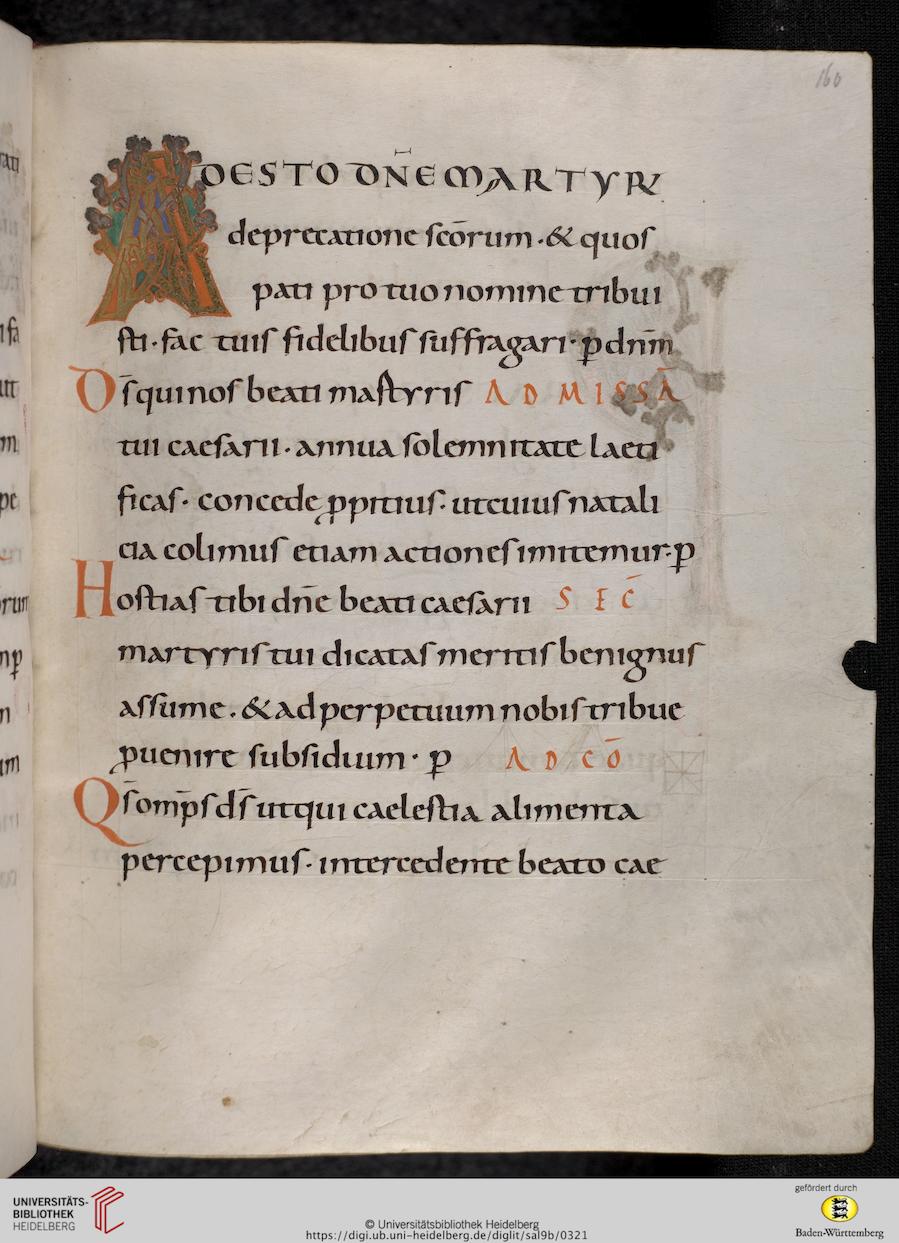 160
ADESTO DN̄E MARTYR
deprecatione scōrum · & quos
pati pro tuo nomine tribui
sti · fac tuis fidelibus suffragari · p̄ dnm̄
Ds̄ qui nos beati martyris AD MISSĀ
tui caesarii · annua solemnitate laeti
ficas · concede ꝓpitius · ut cuius natali
cia colimus etiam actiones imitemur · p̄
Hostias tibi dn̄e beati caesarii SEC̄
martyris tui dicatas meritis benignus
assume · & ad perpetuum nobis tribue
ꝓuenire subsidium · p̄ AD CŌ
Qs̄ omp̄s ds̄ ut qui caelestia alimenta
percepimus · intercedente beato cae
UNIVERSITÄTS-
BIBLIOTHEK
HEIDELBERG
© Universitätsbibliothek Heidelberg
https://digi.ub.uni-heidelberg.de/diglit/sal9b/0321
gefördert durch
Baden-Württemberg